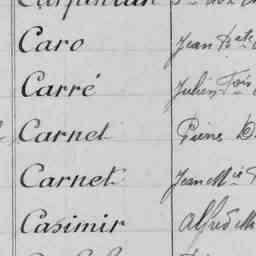 Caro Jean Bte
Carré Julien Fois
Carnel Pierre
Carnet Jean Mie
Casimir Alfred M